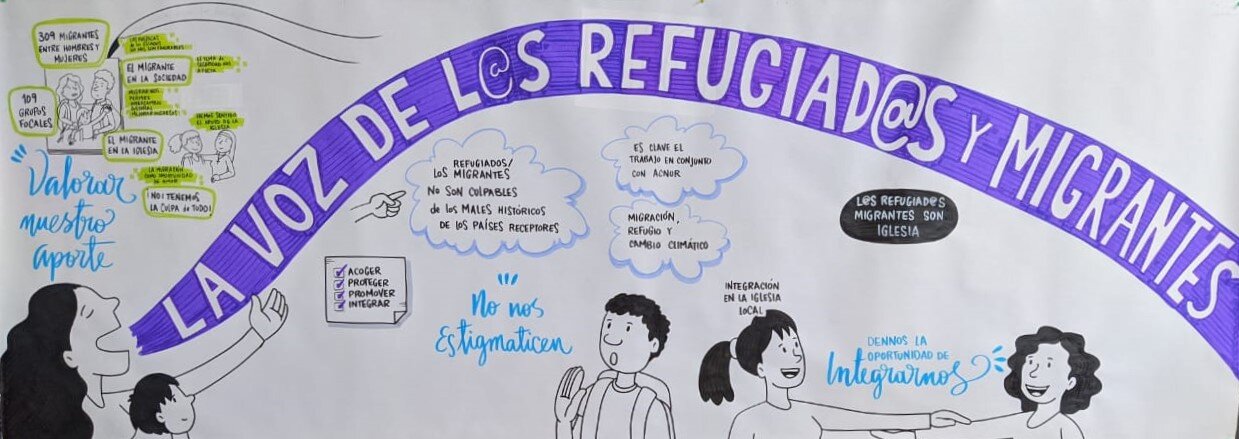 LA VOZ DE L@S REFUGIAD@S Y MIGRANTES
309 MIGRANTES
ENTRE HOMBRES Y
MUJERES
109
GRUPOS
FOCALES
EL MIGRANTE
EN LA SOCIEDAD
EL MIGRANTE
EN LA IGLESIA
HEMOS SENTIDO
EL APOYO DE LA
IGLESIA
LA MIGRACIÓN
COMO OPORTUNIDAD
¡NO! TENEMOS
LA CULPA DE TODO!
Valorar
nuestro
aporte
REFUGIADOS/
LOS MIGRANTES
NO SON CULPABLES
de los MALES HISTÓRICOS
DE LOS PAÍSES RECEPTORES
ES CLAVE EL
TRABAJO EN CONJUNTO
CON ACNUR
MIGRACIÓN,
REFUGIO Y
CAMBIO CLIMÁTICO
L@S REFUGIAD@S
MIGRANTES SON
IGLESIA
ACOGER
PROTEGER
PROMOVER
INTEGRAR
No nos
Estigmaticen
INTEGRACIÓN
EN LA IGLESIA
LOCAL
DENNOS LA
OPORTUNIDAD DE
Integrarnos